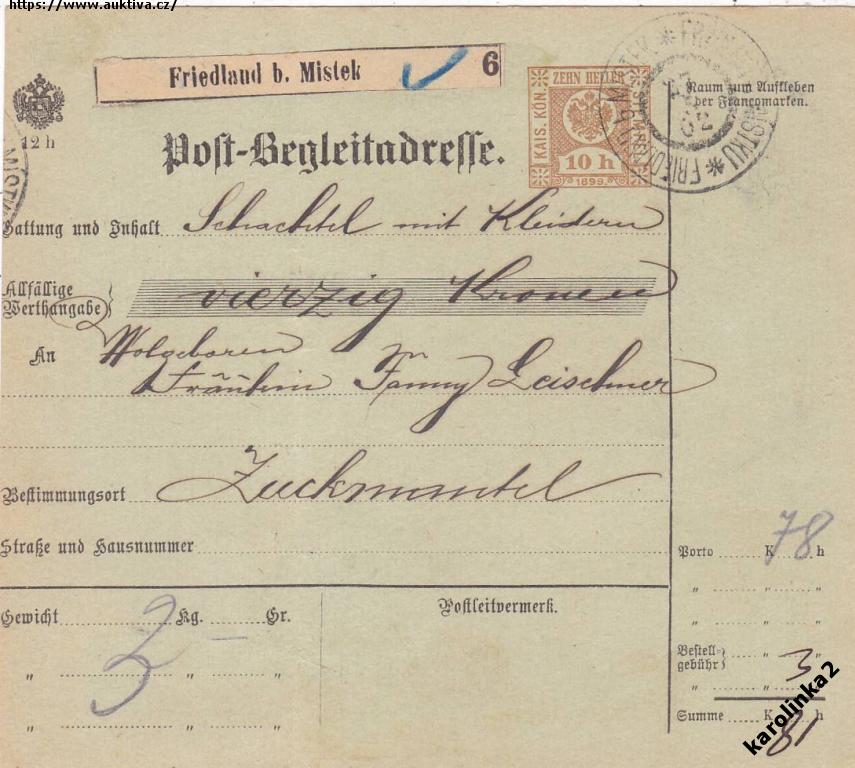 https://www.auktiva.cz/
Friedland b. Mistek 6
ZEHN HELLER
KAIS. KÖN.
10 h
1899.
Raum zum Aufkleben
der Francomarken.
12 h
Post-Begleitadresse.
Gattung und Inhalt Schachtel mit Kleidern
Allfällige
Werthangabe vierzig Kronen
An Wolgeboren
Fräulein Fanny Leischner
Bestimmungsort Zuckmantel
Straße und Hausnummer
Porto K 78 h
" " "
" " "
Bestell-
gebühr " 3 "
" "
Summe K 81 h
Gewicht 3 Kg. — Gr.
" " "
" " "
Postleitvermerk.
karolinka2